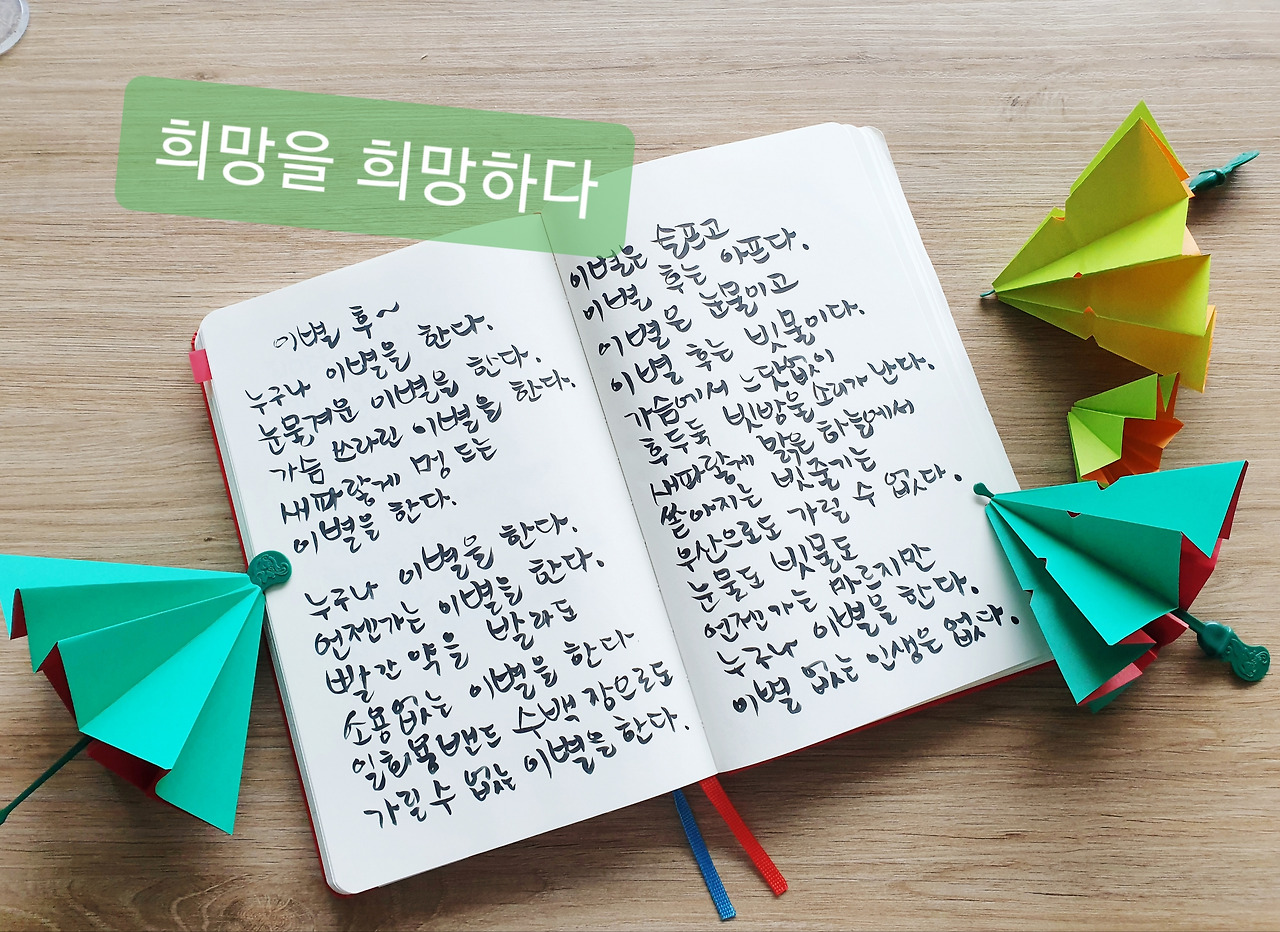 희망을 희망하다
이별 후~
누구나 이별을 한다.
눈물겨운 이별을 한다.
가슴 쓰라린 이별을 한다.
새파랗게 멍 드는
이별을 한다.
누구나 이별을 한다.
언젠가는 이별을 한다.
빨간 약을 발라도
소용없는 이별을 한다
일회용밴드 수백 장으로도
가릴 수 없는 이별을 한다.
이별은 슬프고
이별 후는 아프다.
이별은 눈물이고
이별 후는 빗물이다.
가슴에서 느닷없이
후두둑 빗방울 소리가 난다.
새파랗게 맑은 하늘에서
쏟아지는 빗줄기는
우산으로도 가릴 수 없다.
눈물도 빗물도
언젠가는 마르지만
누구나 이별을 한다.
이별 없는 인생은 없다.